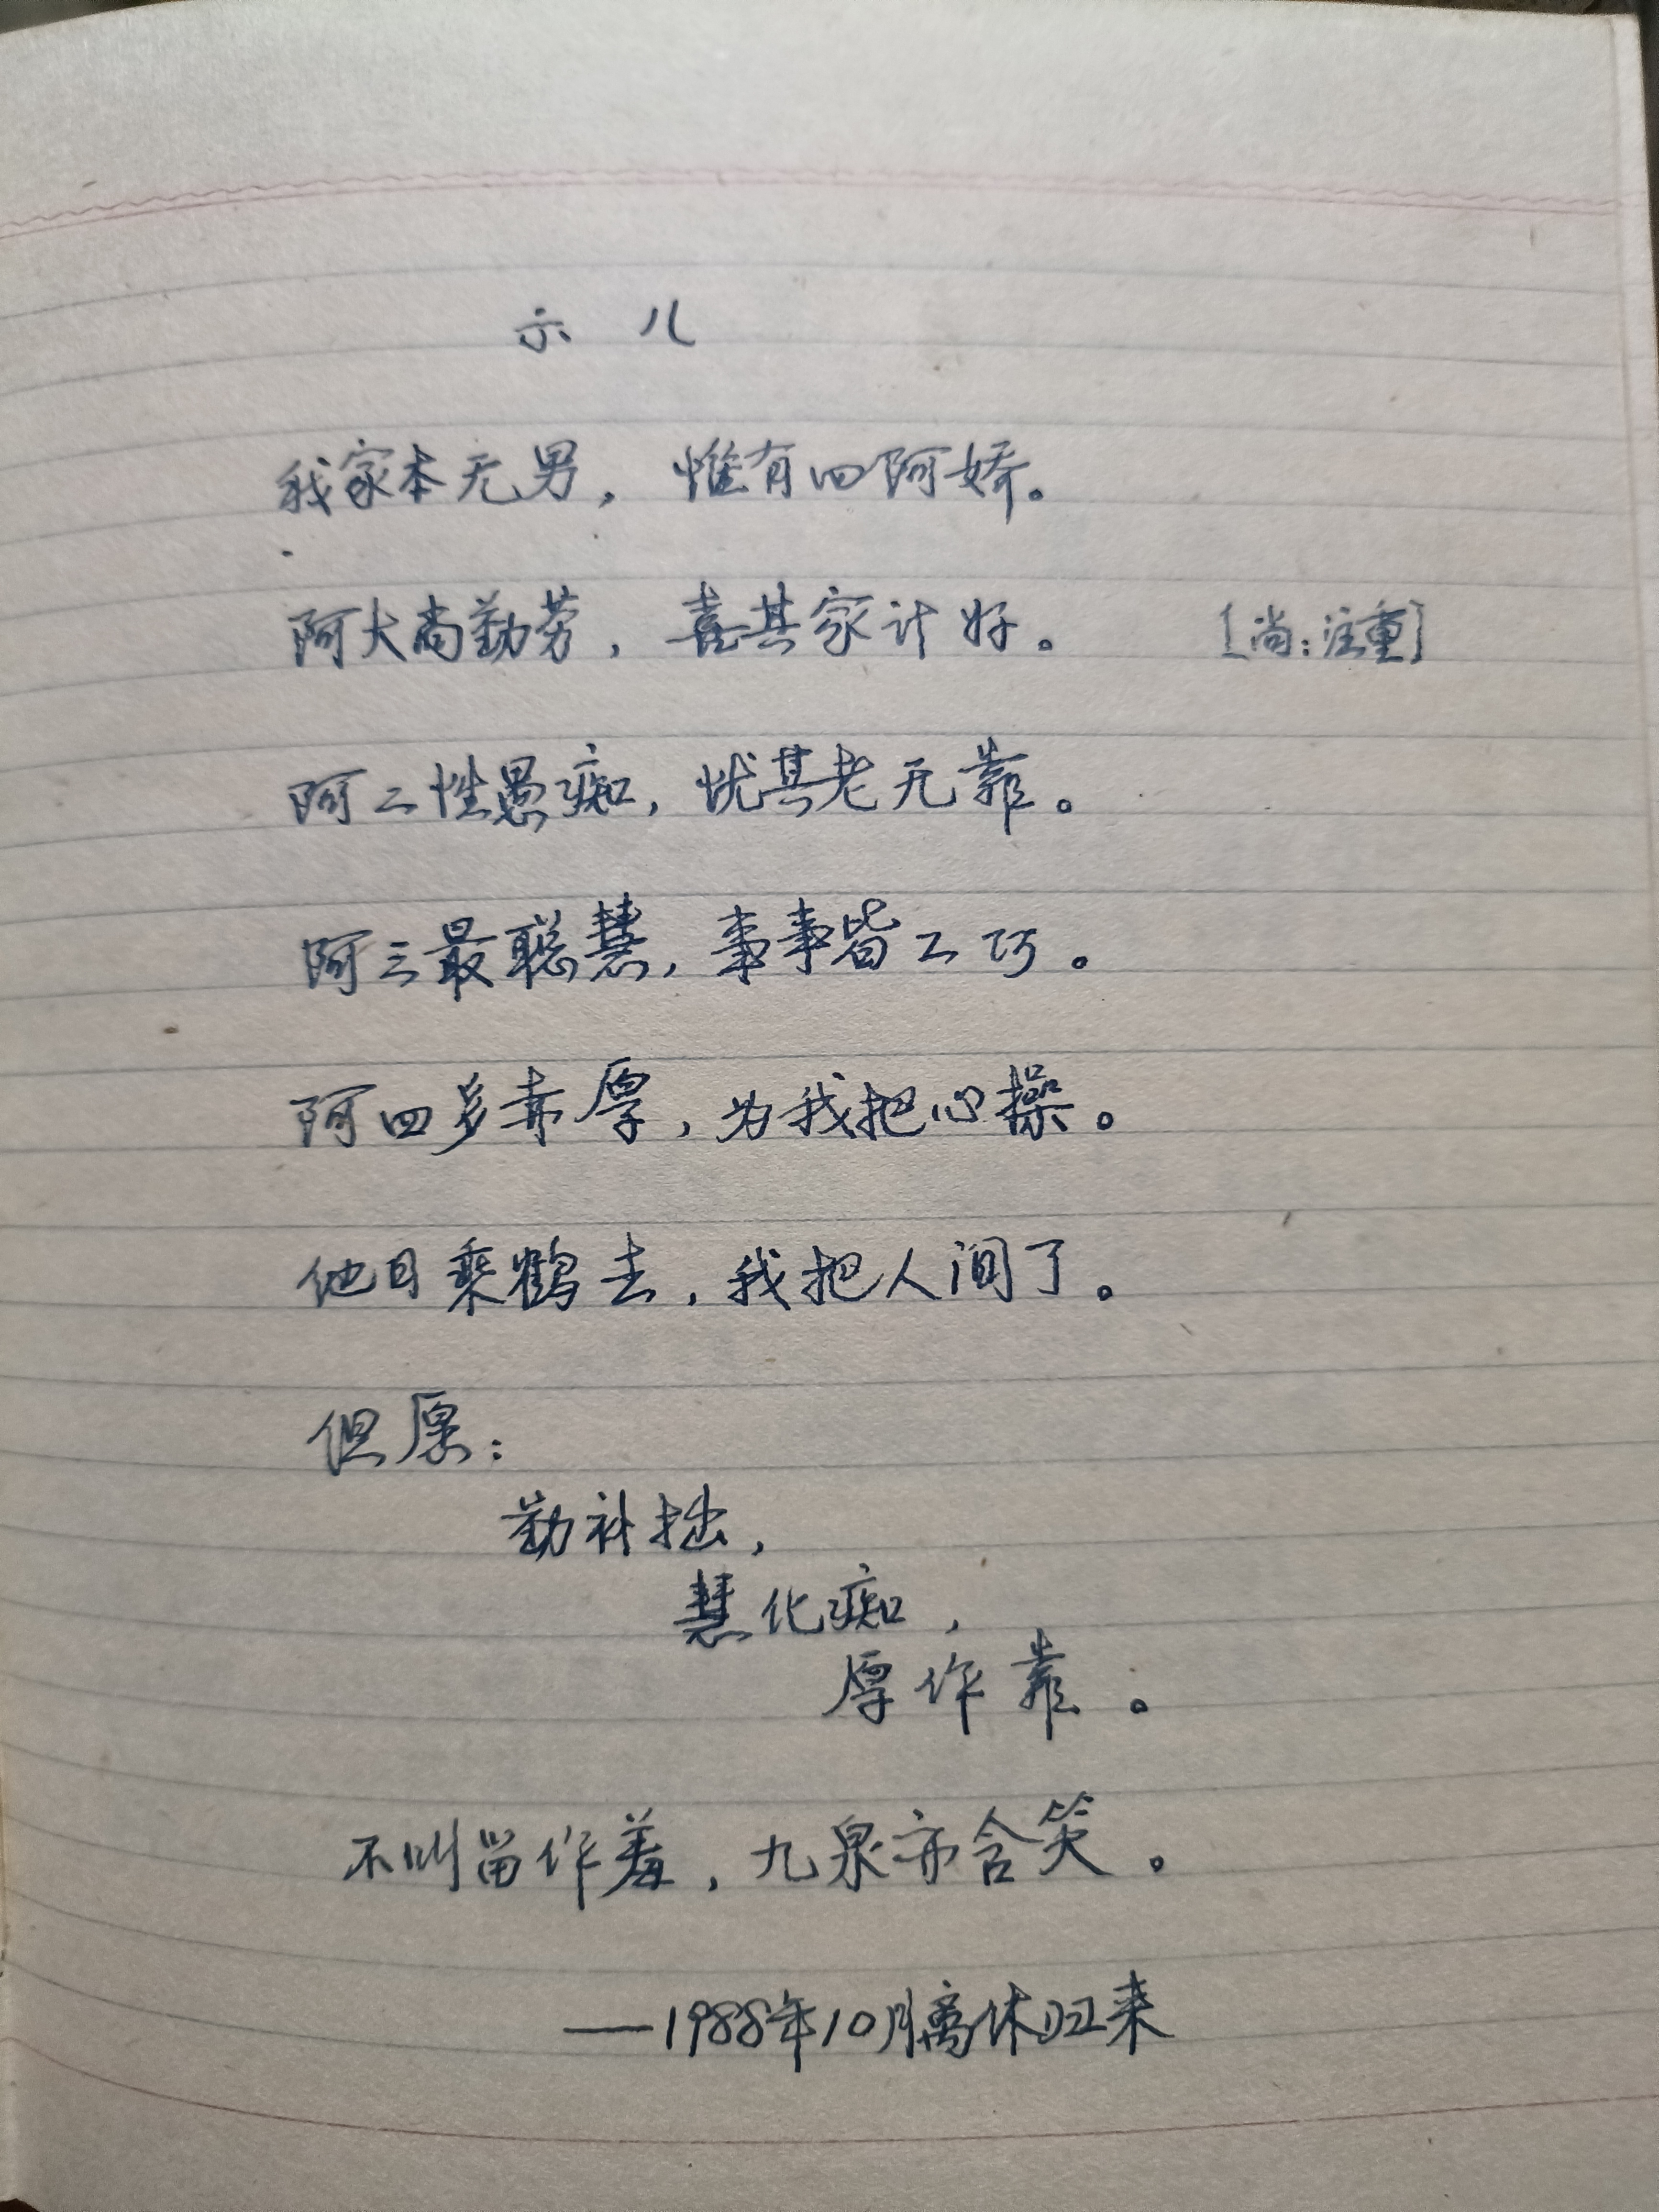 示儿
我家本无男，惟有四阿娇。
阿大尚勤劳，喜其家计好。 [尚：注重]
阿二性愚痴，忧其老无靠。
阿三最聪慧，事事皆工巧。
阿四多赤厚，为我把心操。
他日乘鹤去，我把人间了。
但愿：
勤补拙，
慧化痴，
厚作靠。
不叫留作羞，九泉亦含笑。
——1988年10月离休归来